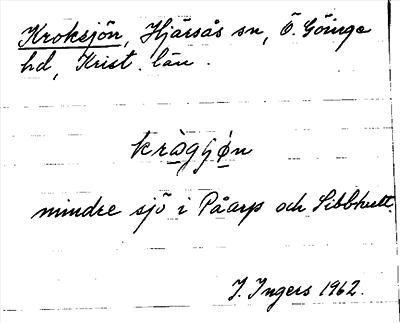 Kroksjön, Hjärsås sn, Ö. Göinge
hd, Krist. län.
kràgjọn
mindre sjö i Påarp och Sibbhult.
I. Ingers 1962.